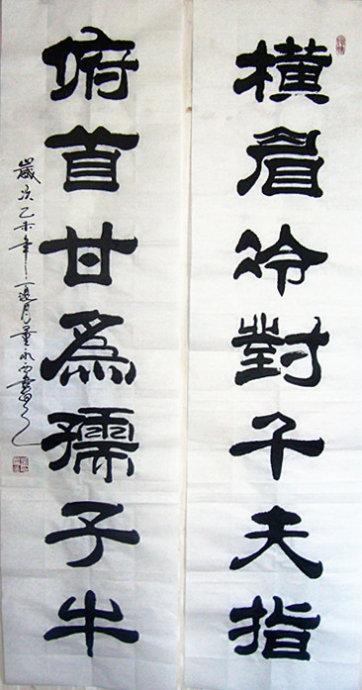 橫眉冷對千夫指
俯首甘為孺子牛
歲次乙未年